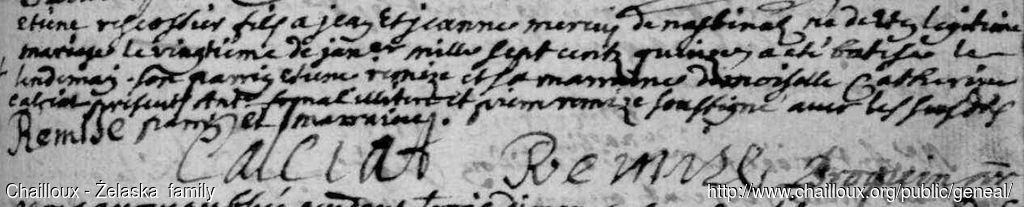 Etiene rescossier fils a jean Et jeanne mercier de nasbinals né de leur legitime
mariage le vingtième de janer mille sept cents quinze a été batisé le
lendemain son parrin Etiene remize et sa marraine damoiselle Catherine
calciat presents Ant illitere et pierre remize soussigné avec les susdits
Remise parrin et marraine.
Calciat Remise
Chailloux - Želaska family
http://www.chailloux.org/public/geneal/